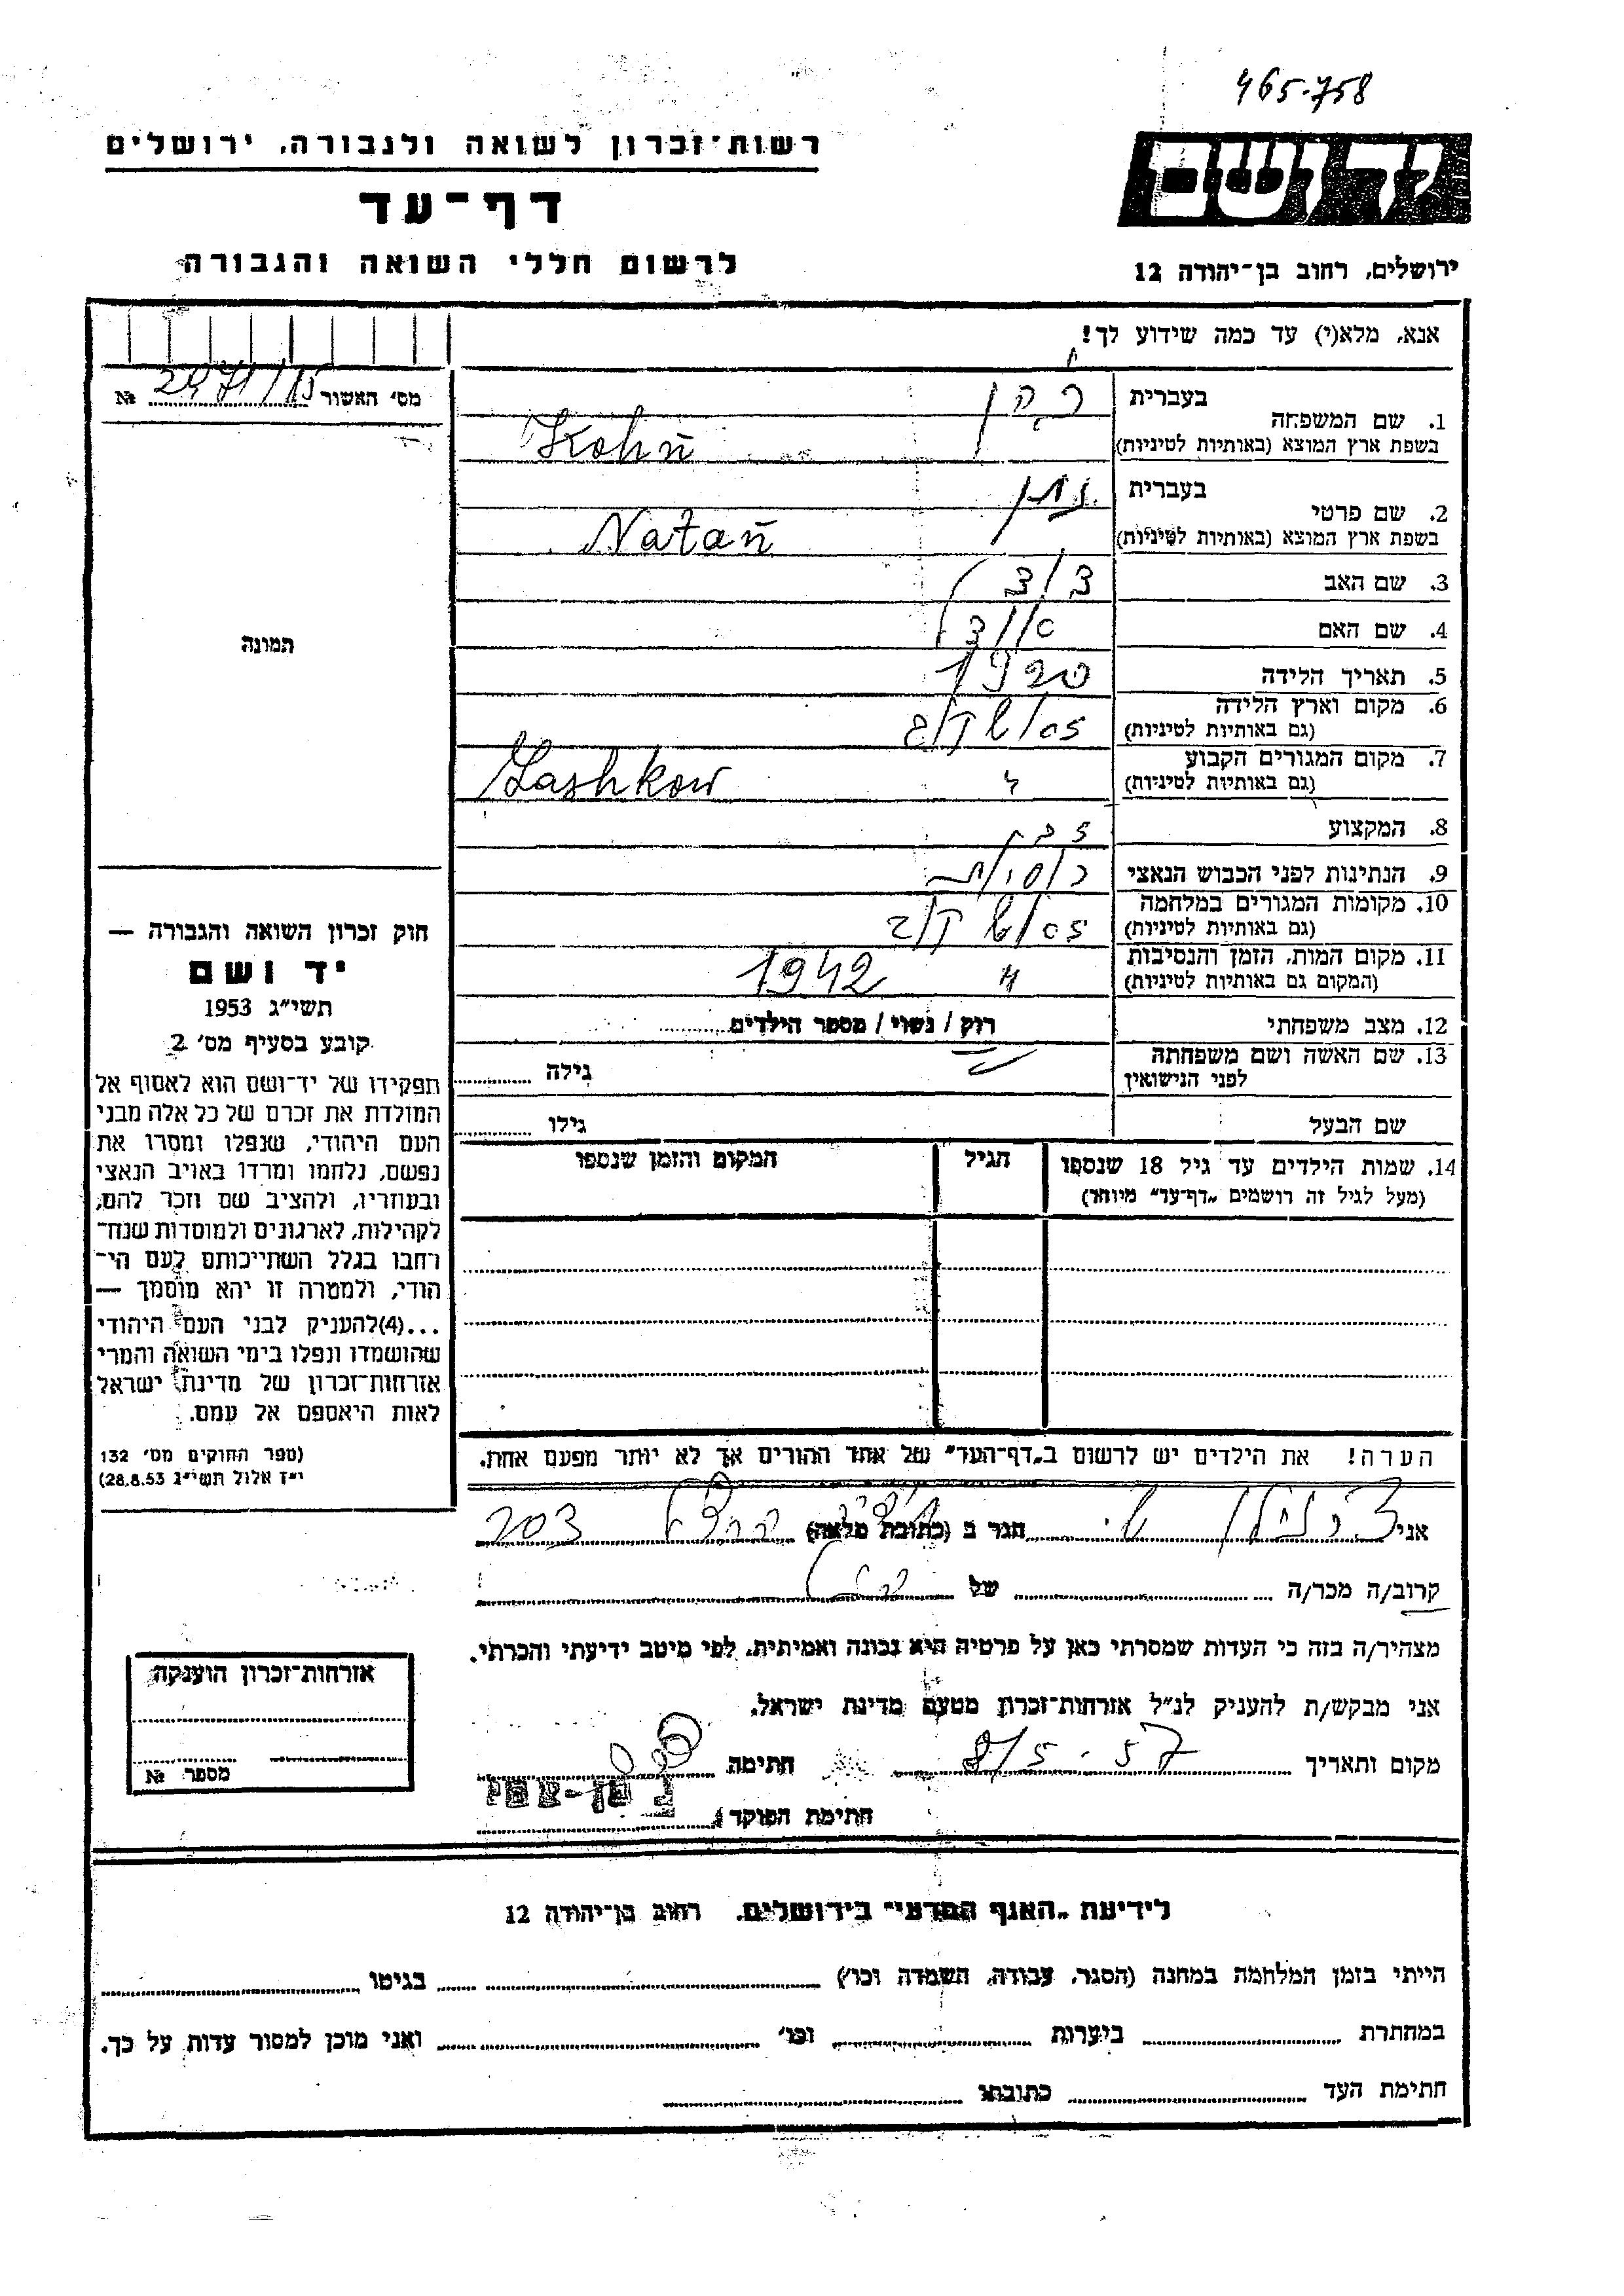 465-758
יד ושם
רשות־זכרון לשואה ולגבורה, ירושלים
דף־עד
לרשום חללי השואה והגבורה
ירושלים, רחוב בן־יהודה 12
אנא, מלא(י) עד כמה שידוע לך!
מס׳ האשור №
1. שם המשפחה
בעברית כהן
בשפת ארץ המוצא (באותיות לטיניות) Kohn
2. שם פרטי
בעברית נתן
בשפת ארץ המוצא (באותיות לטיניות) Natan
3. שם האב
4. שם האם
5. תאריך הלידה 1920
6. מקום וארץ הלידה
(גם באותיות לטיניות)
7. מקום המגורים הקבוע
(גם באותיות לטיניות) Zashkow
8. המקצוע
9. הנתינות לפני הכבוש הנאצי
10. מקומות המגורים במלחמה
(גם באותיות לטיניות)
11. מקום המות, הזמן והנסיבות
(המקום גם באותיות לטיניות) " 1942
12. מצב משפחתי רוק / נשוי / מספר הילדים
13. שם האשה ושם משפחתה
לפני הנישואין גילה
שם הבעל גילו
14. שמות הילדים עד גיל 18 שנספו הגיל המקום והזמן שנספו
(מעל לגיל זה רושמים „דף־עד״ מיוחד)
הערה! את הילדים יש לרשום ב„דף־העד״ של אחד ההורים אך לא יותר מפעם אחת.
תמונה
חוק זכרון השואה והגבורה —
יד ושם
תשי״ג 1953
קובע בסעיף מס׳ 2
תפקידו של יד־ושם הוא לאסוף אל
המולדת את זכרם של כל אלה מבני
העם היהודי, שנפלו ומסרו את
נפשם, נלחמו ומרדו באויב הנאצי
ובעוזריו, ולהציב שם וזכר להם,
לקהילות, לארגונים ולמוסדות שנח־
רחבו בגלל השתייכותם לעם הי־
הודי, ולמטרה זו יהא מוסמך —
...(4)להעניק לבני העם היהודי
שהושמדו ונפלו בימי השואה והמרי
אזרחות־זכרון של מדינת ישראל
לאות היאספם אל עמם.
(ספר החוקים מס׳ 132
י״ז אלול תשי״ג 28.8.53)
אני הגר ב (כתובת מלאה) 203
קרוב/ה מכר/ה של
מצהיר/ה בזה כי העדות שמסרתי כאן על פרטיה היא נכונה ואמיתית, לפי מיטב ידיעתי והכרתי.
אני מבקש/ת להעניק לנ״ל אזרחות־זכרון מטעם מדינת ישראל.
מקום ותאריך 8/5.57 חתימה
חתימת הפוקד
אזרחות־זכרון הוענקה
מספר №
לידיעת „האגף המדעי״ בירושלים, רחוב בן־יהודה 12
הייתי בזמן המלחמה במחנה (הסגר, עבודה, השמדה וכו׳) בגיטו
במחתרת ביערות וכו׳ ואני מוכן למסור עדות על כך.
חתימת העד כתובתו